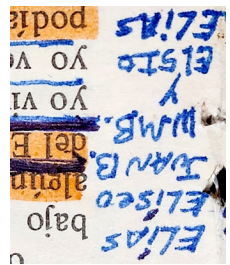 ELIAS
ELISEO
JUAN B.
WMB.
Y
ELSIO
ELIAS
bajo
algún
del E
yo vi
yo v
podía